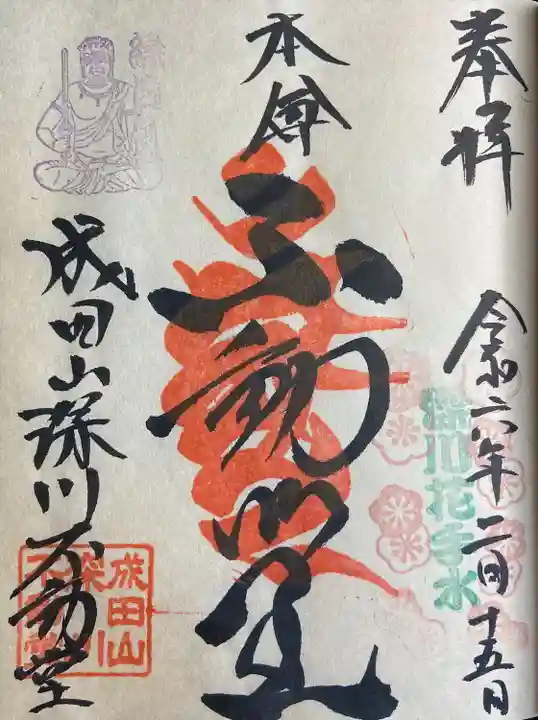 奉拝
令和六年二月十五日
深川花手水
本尊
不動明王
成田山深川不動堂
成田山
深川
不動堂